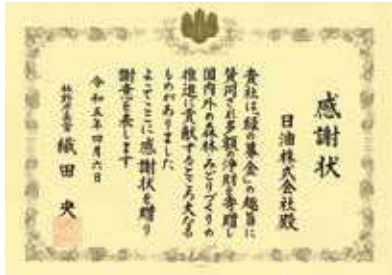 感謝状
日油株式会社殿
貴社は「緑の募金」の趣旨に
賛同され多額の浄財を寄贈し
国内外の森林、みどりづくりの
推進に貢献するところ大なる
ものがありました
よってここに感謝状を贈り
謝意を表します
令和五年四月六日
林野庁長官 織田 央